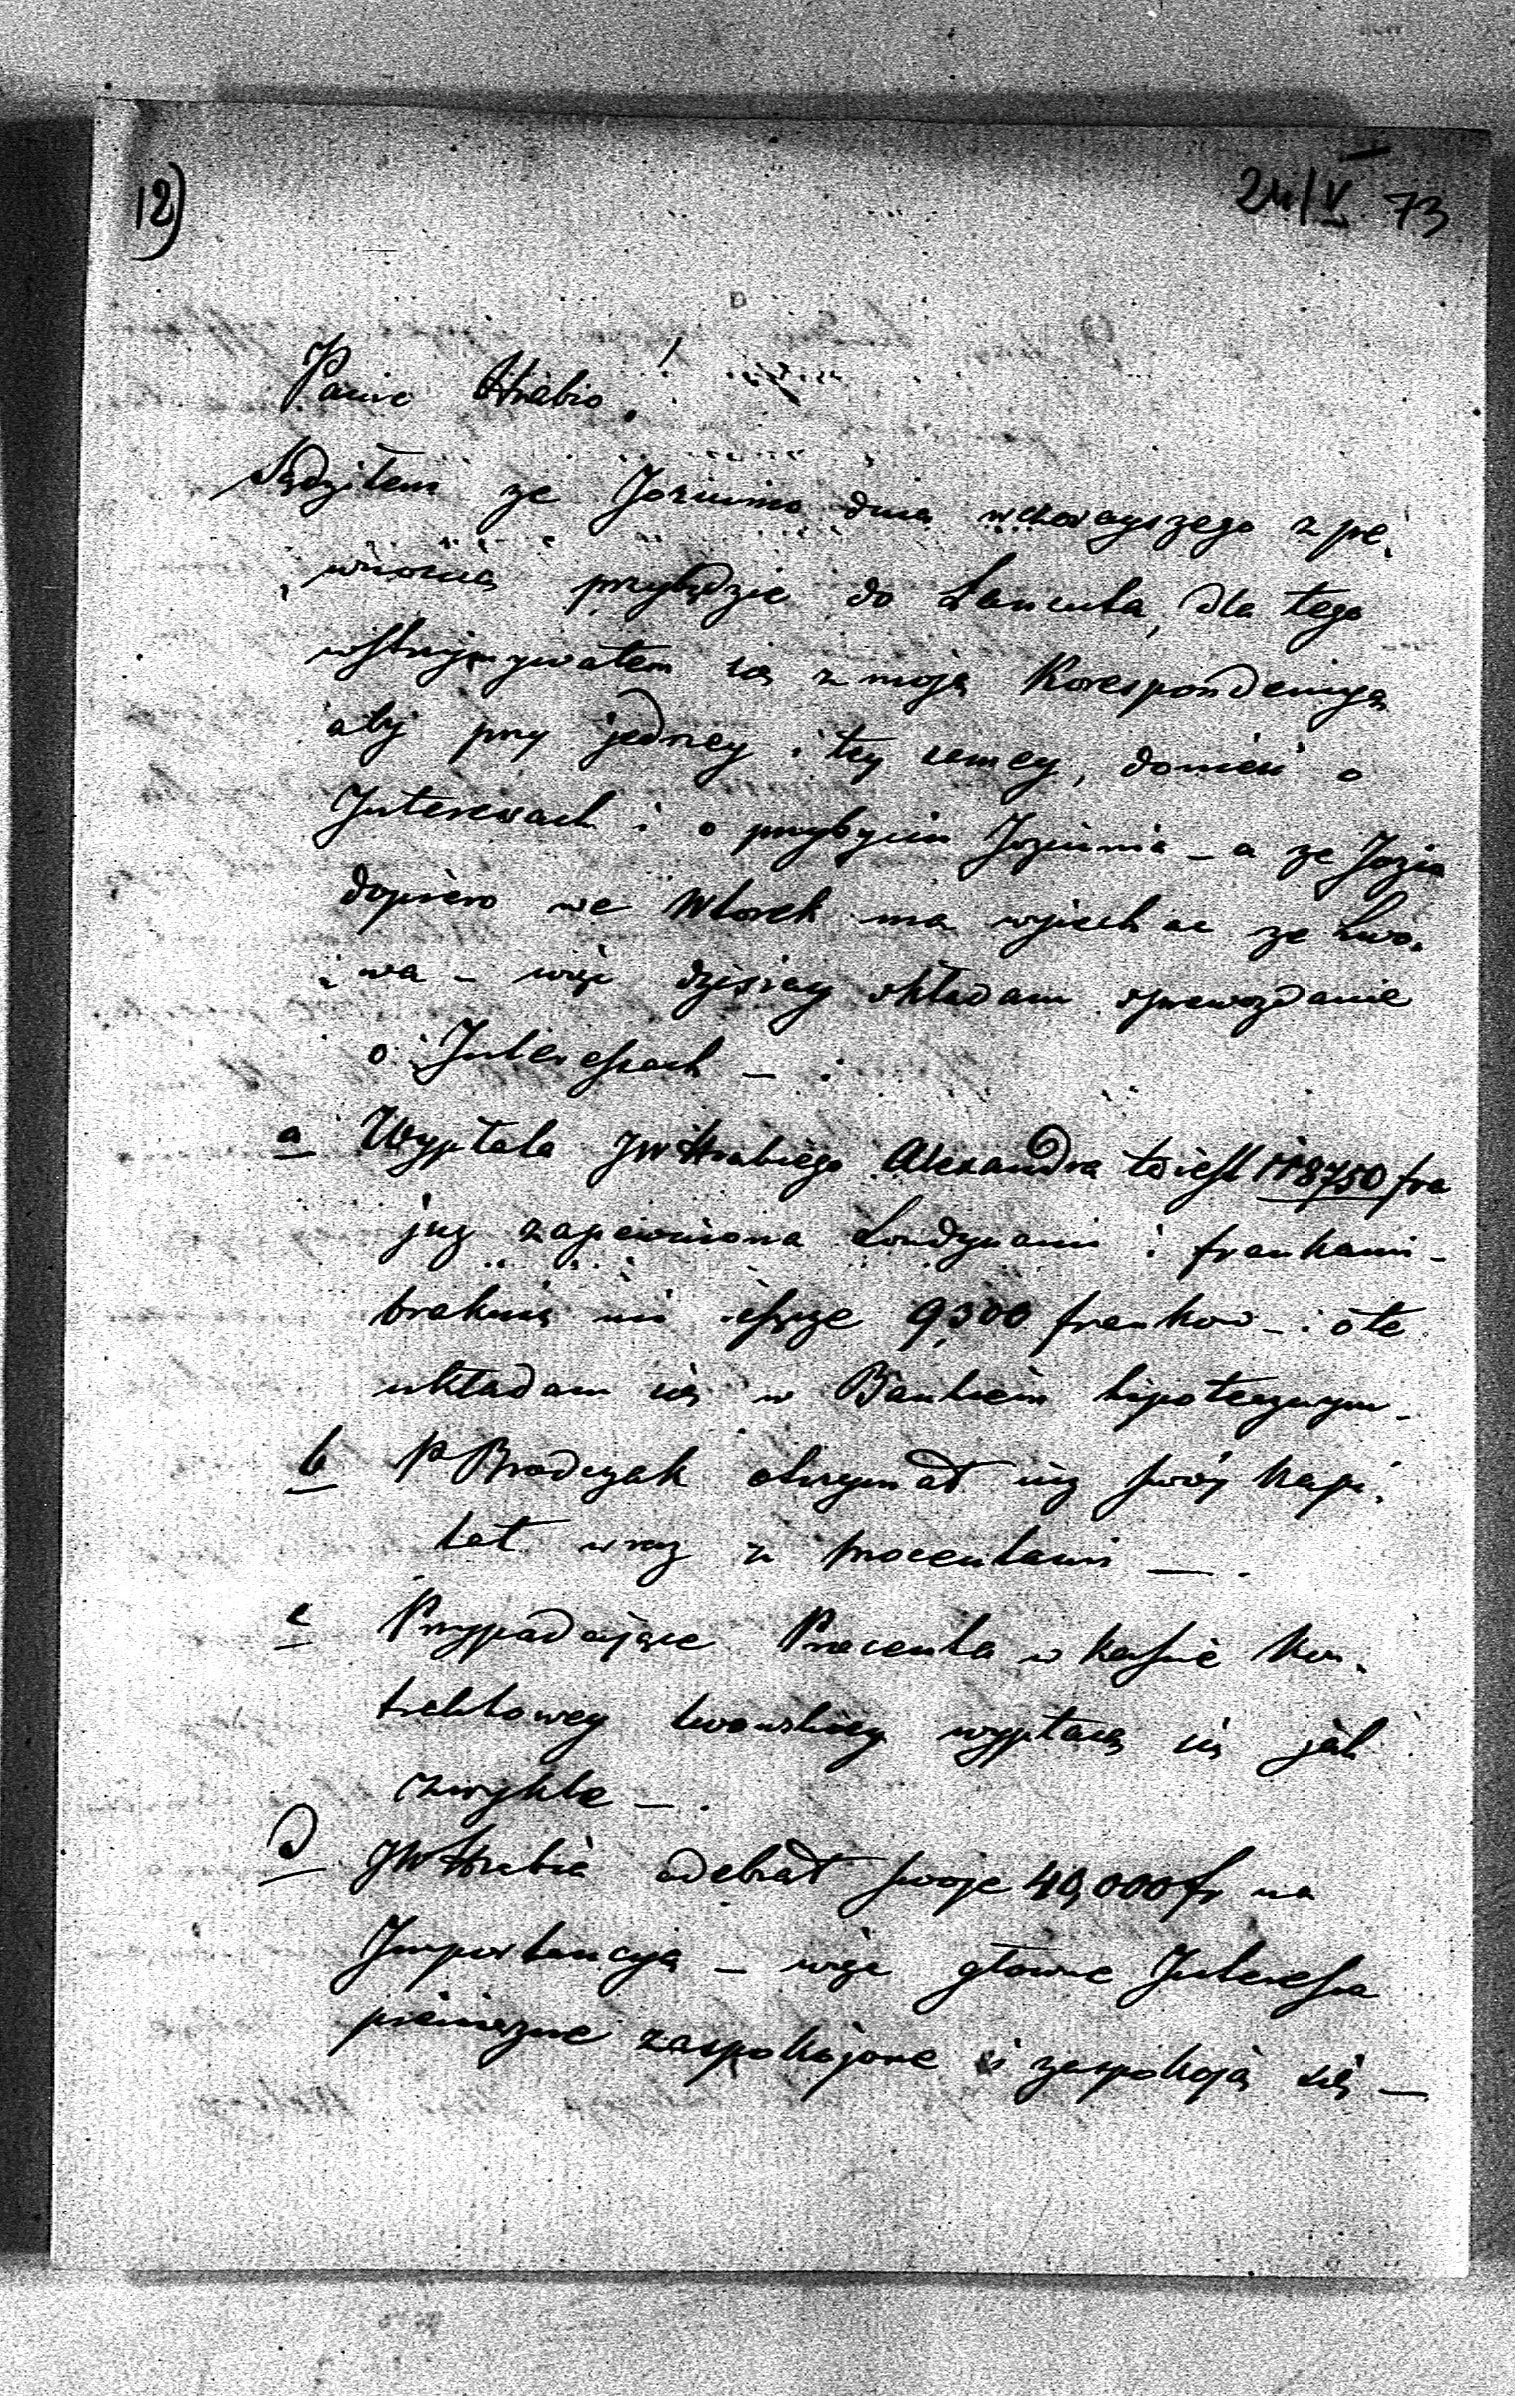 12)
24/V 73
Panie Hrabio!
Sądziłem ze Joziunio dnia wczorayszego z pe„
„wnością przybędzie do Łancuta, dla tego
wstrzymywałem się z moją Korespondencyą
aby przy jedney i tey samey, donieść o
Interesach i o przybyciu Joziunia – a ze Jozio
dopiero we Wtorek ma wyjechac ze Lwo„
„wa – więc dzisiay składam sprawozdanie
o Interessach –
a Wypłata JW Hrabiego Alexandra to iest 118750 fra
juz zapewniona Londynami i frankami –
braknie mi ieszcze 9,300 frankow – i o te
układam się w Bankiem hipotecznym –
b P Brodczak otrzymał iuz swój kapi„
tał wraz z procentami —
c Przypadające Procenta w kassie Kon„
traktowey lwowskiey wypłacą się jak
zwykle –
d JW Hrabia odebrał swoje 40,000 fr na
Importancyą – więc głowne Interessa
pienięzne zaspokojone i zaspokoją się –